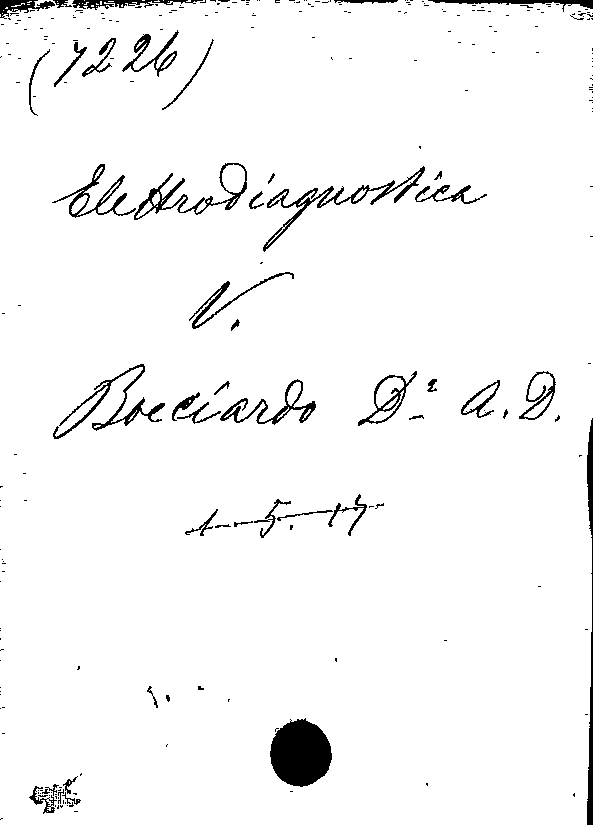 (7226)
Elettrodiagnostica
V.
Bocciardo Dr. A. D.
1-5.17